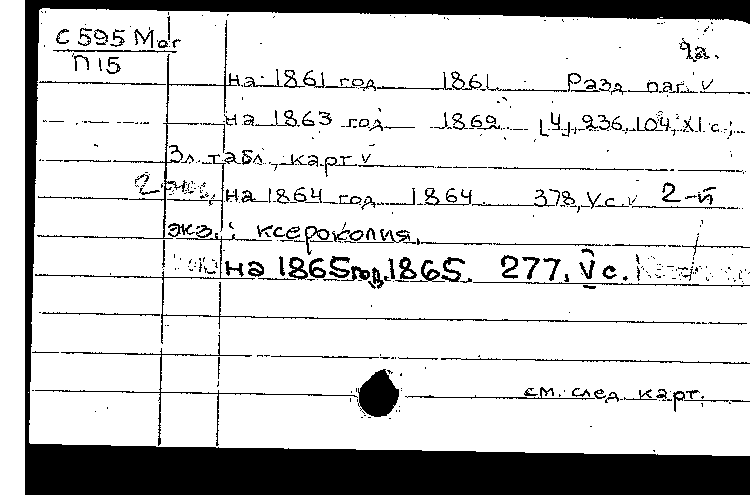 С 595 Мог
П 15
9а.
на 1861 год 1861 Разд. паг. v
на 1863 год 1862 [4], 236, 104, XI с.;
3 л. табл., карт v
2 экз. на 1864 год 1864 378, V с. v 2-й
экз.: ксерокопия.
на 1865 год. 1865. 277, V с.
см. след. карт.